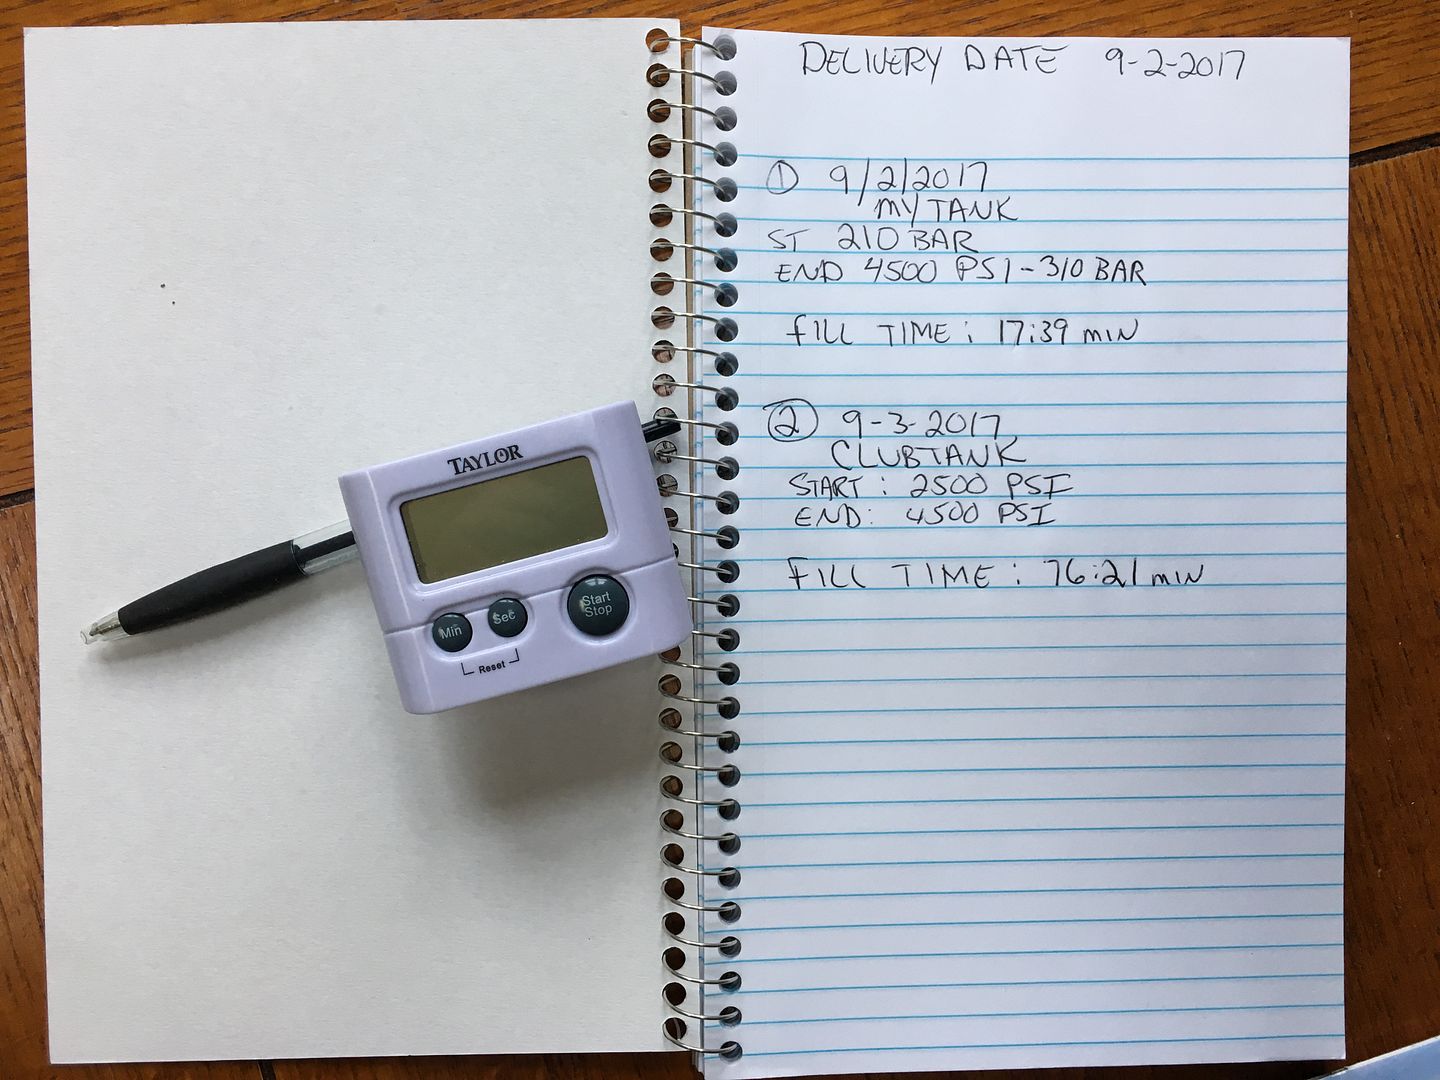 DELIVERY DATE 9-2-2017
① 9/2/2017
MY TANK
ST 210 BAR
END 4500 PSI-310 BAR
FILL TIME: 17:39 MIN
② 9-3-2017
CLUBTANK
START: 2500 PSI
END: 4500 PSI
FILL TIME: 76:21 MIN
TAYLOR
Min Sec Start
Stop
Reset